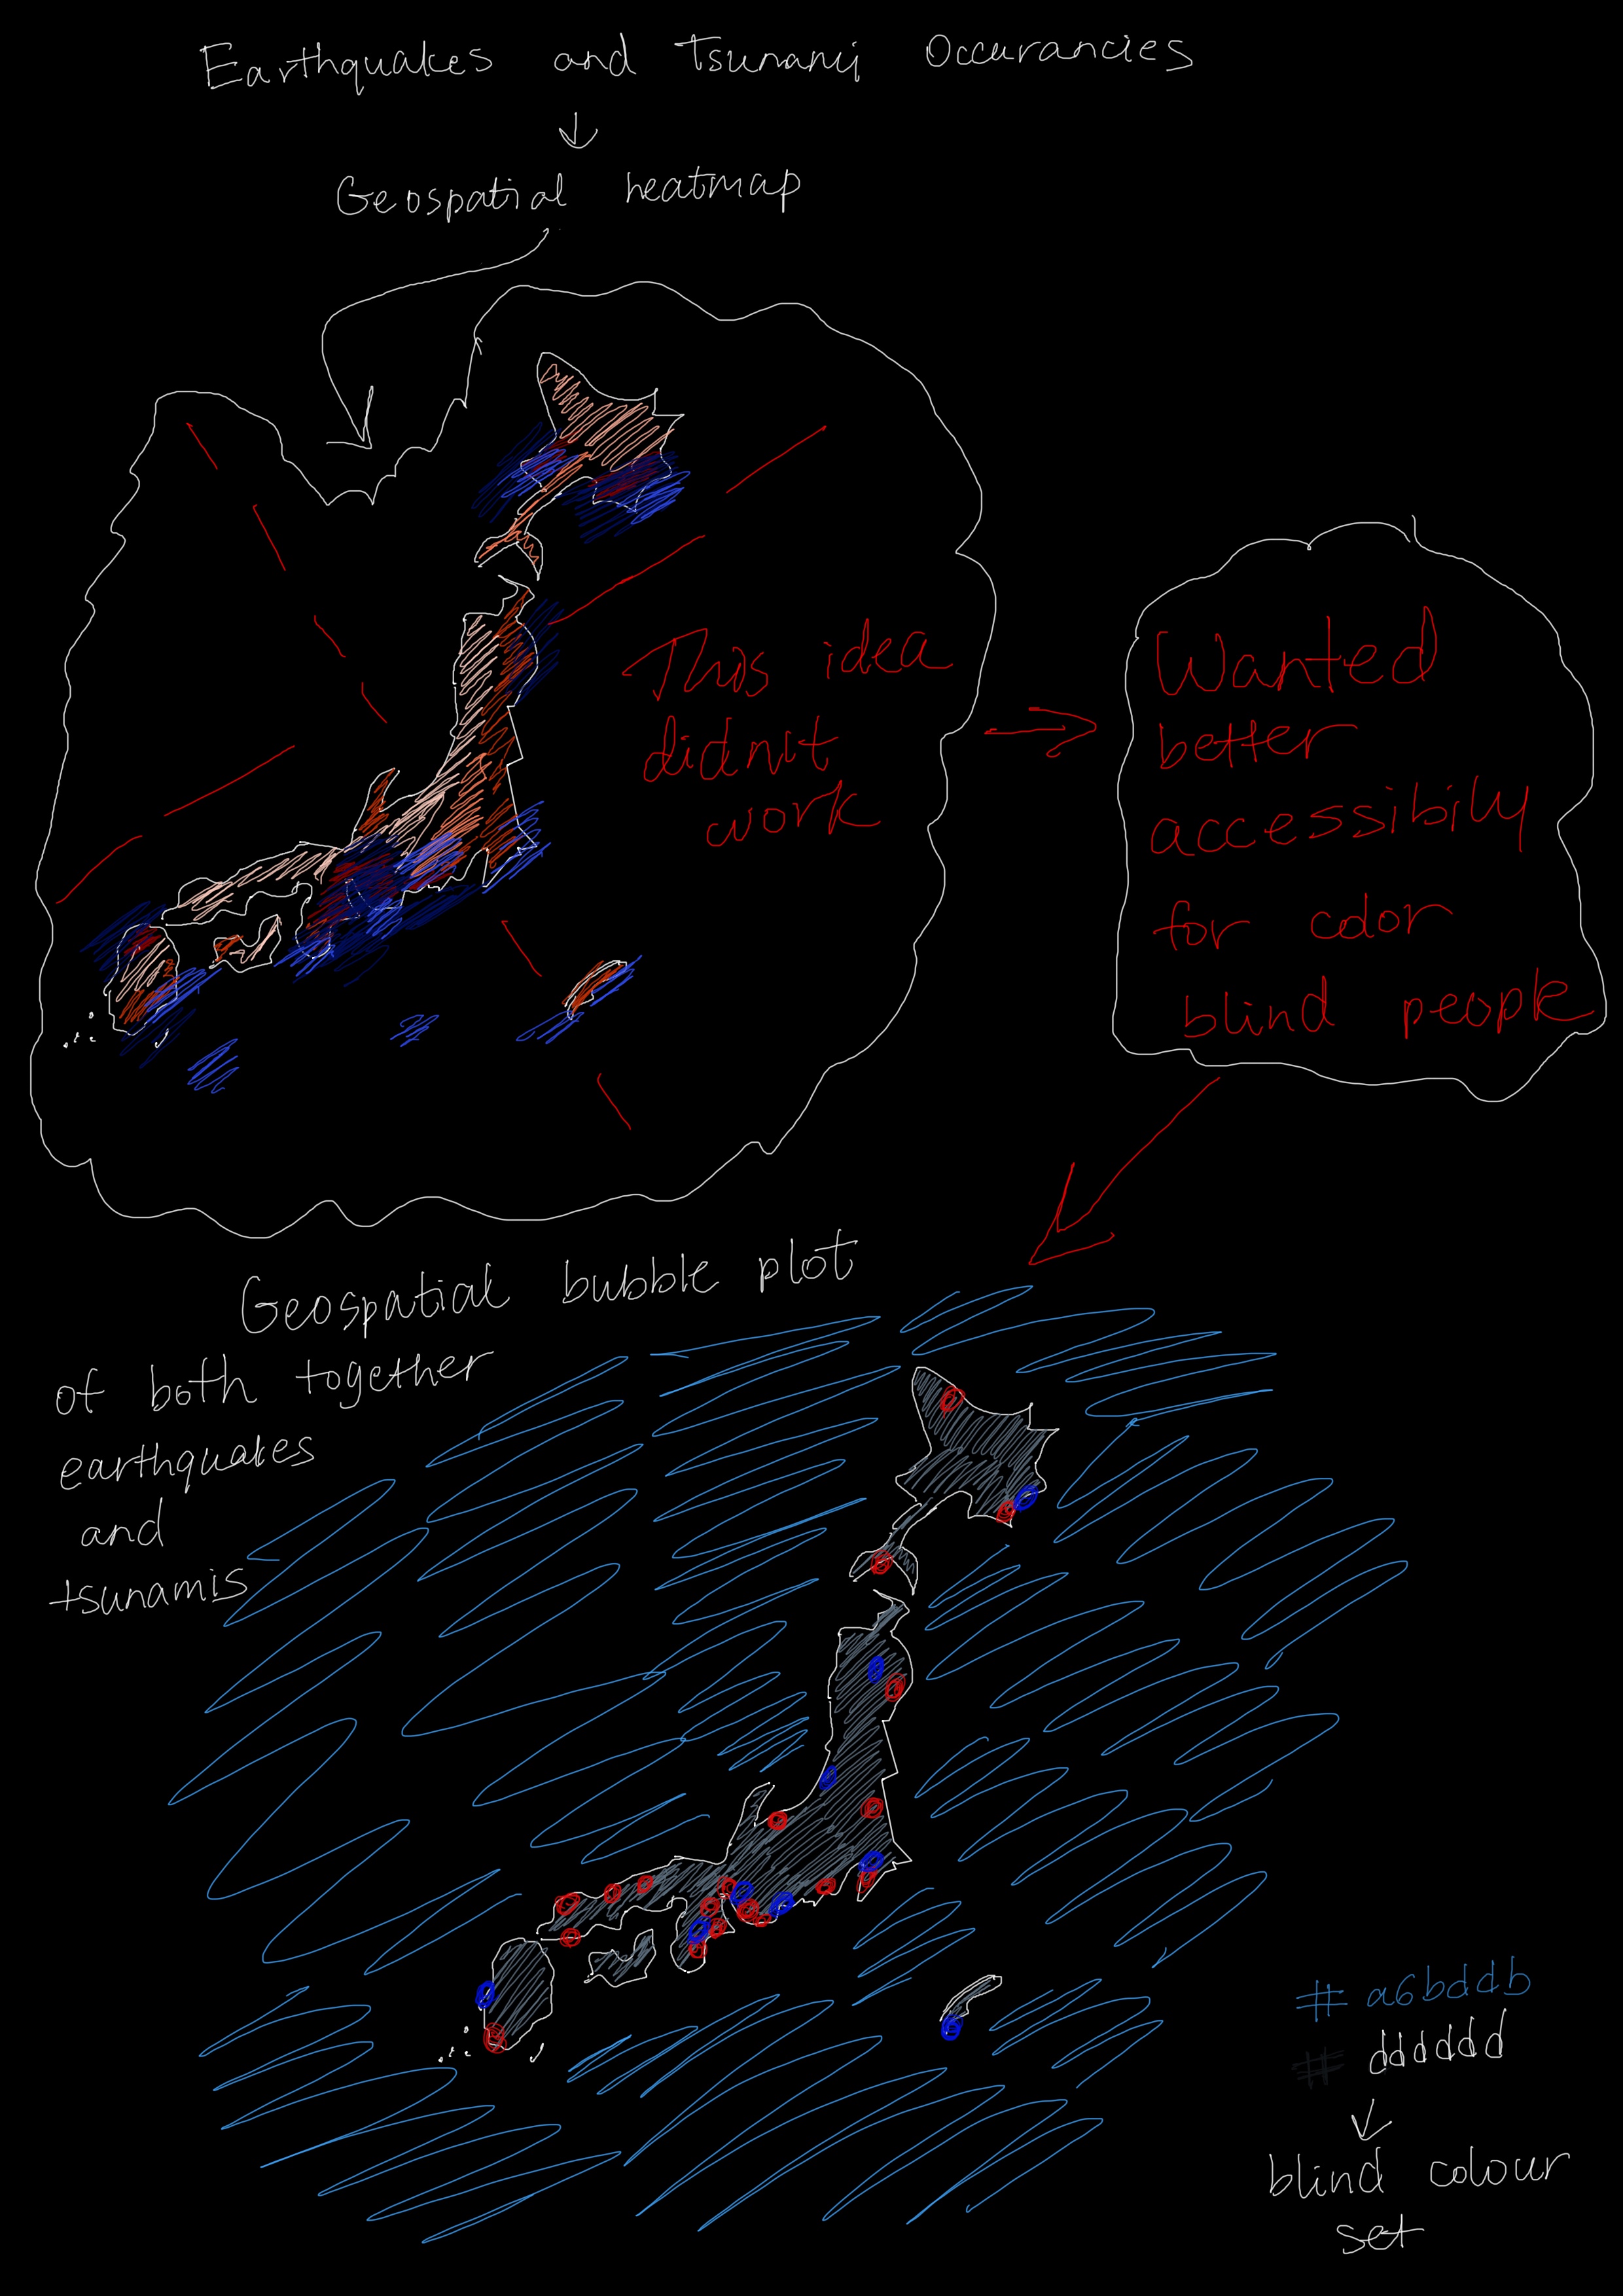 Earthquakes and Tsunami Occurancies
Geospatial heatmap
This idea
didn't
work
Wanted
better
accessibily
for color
blind people
Geospatial bubble plot
of both together
earthquakes
and
tsunamis
# a6bddb
# dddddd
blind colour
set